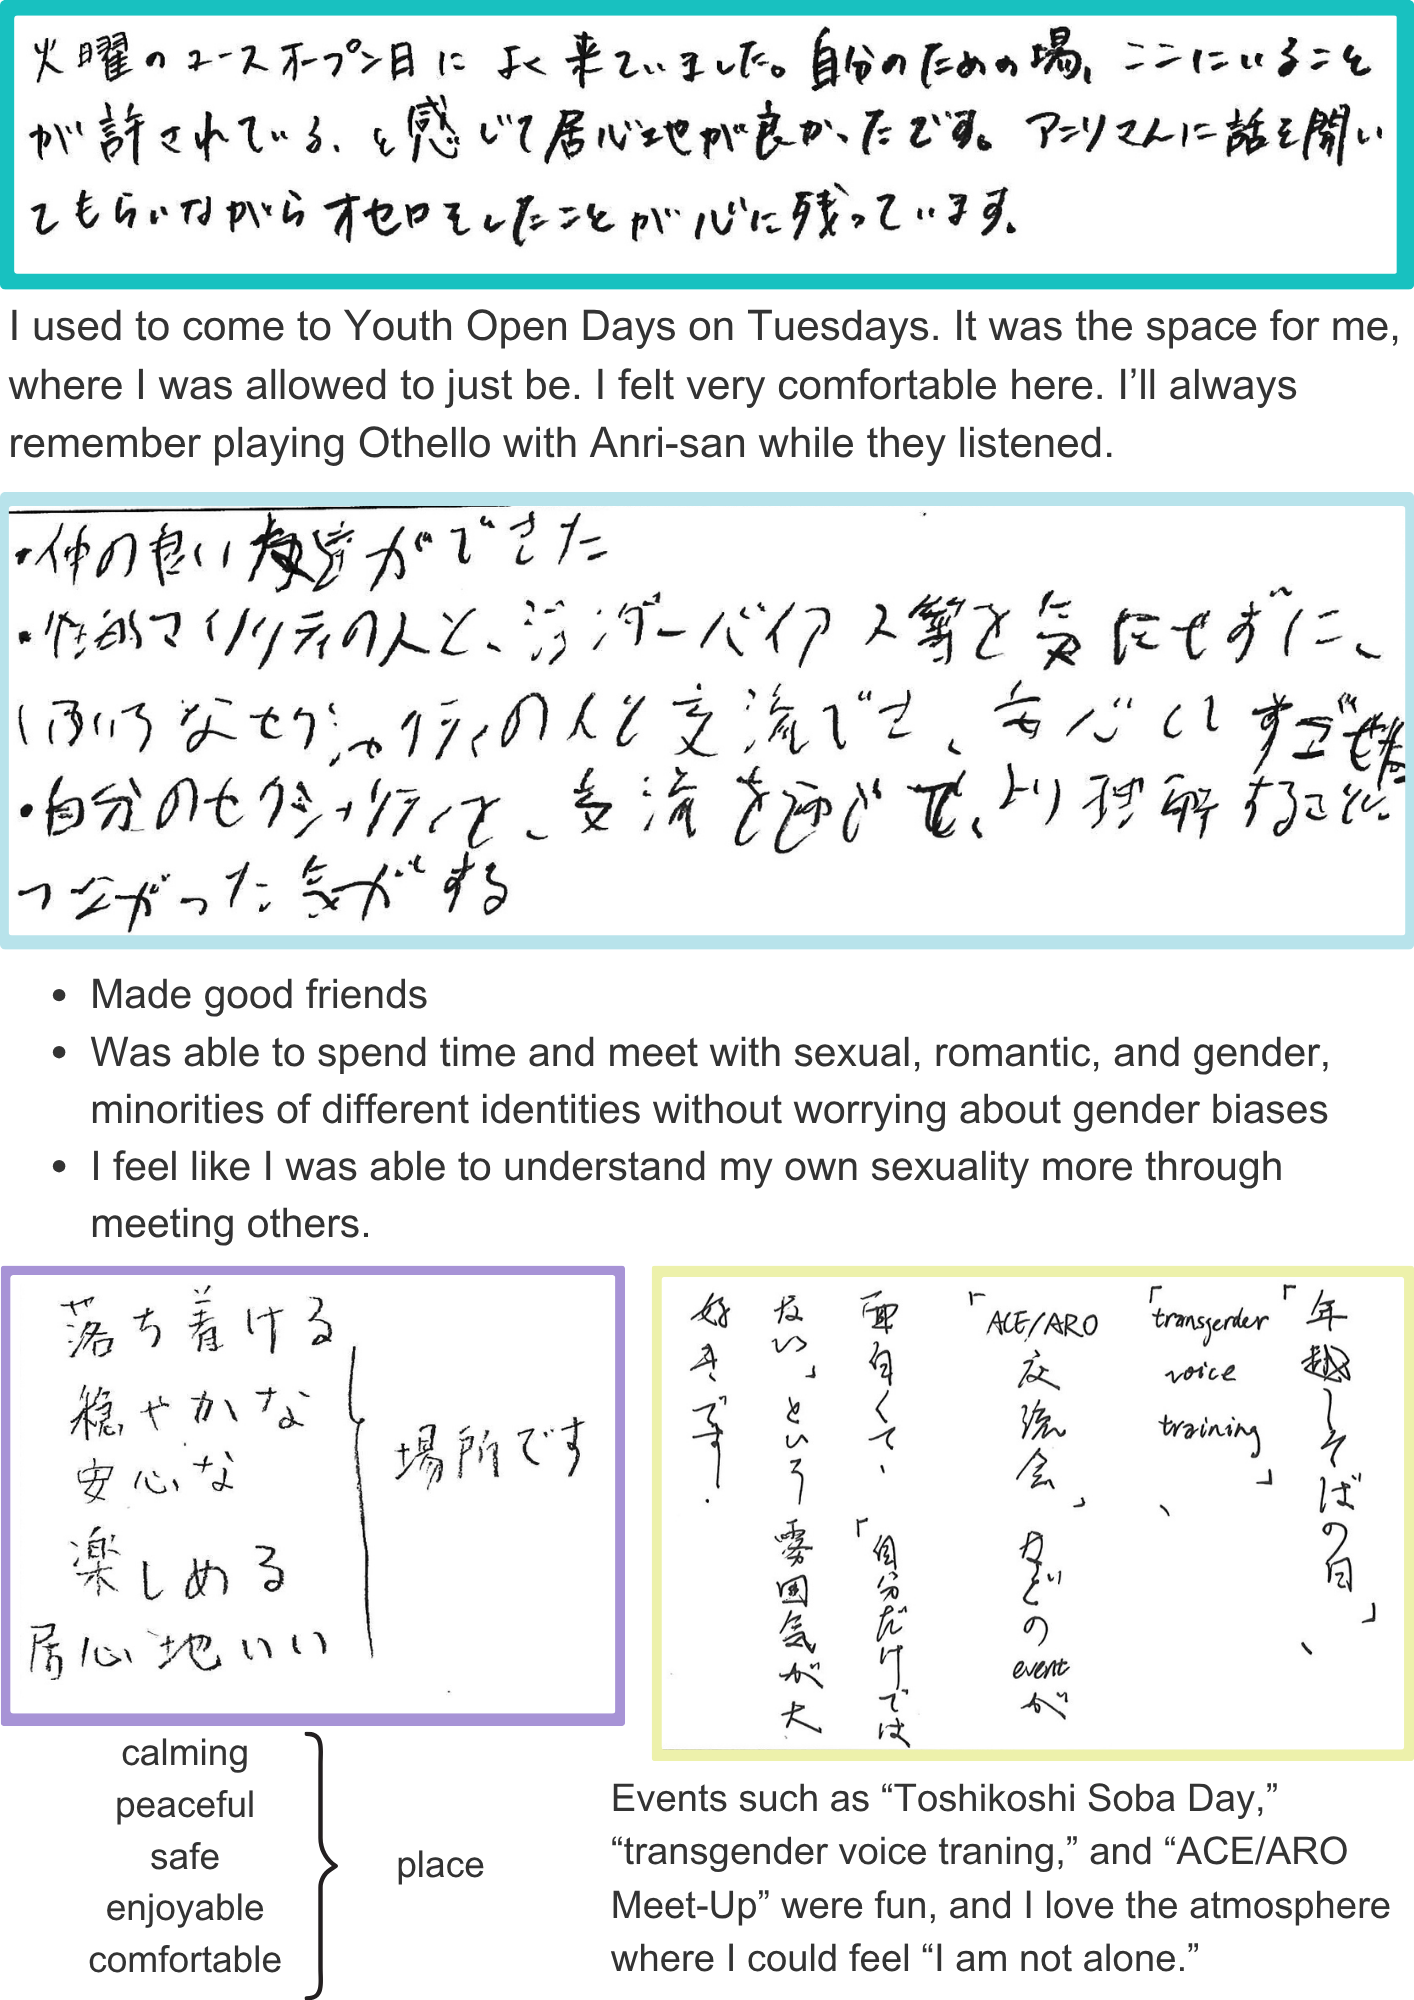 火曜のユースオープン日によく来ていました。自分のための場、ここにいること
が許されている、と感じて居心地が良かったです。アンリさんに話を聞い
てもらいながらオセロをしたことが心に残っています。
I used to come to Youth Open Days on Tuesdays. It was the space for me,
where I was allowed to just be. I felt very comfortable here. I’ll always
remember playing Othello with Anri-san while they listened.
・仲の良い友達ができた
・性的マイノリティの人と、ジェンダーバイアス等を気にせずに、
いろいろなセクシャリティの人と交流でき、安心してすごせた
・自分のセクシャリティを、交流を通じて、より理解することに
つながった気がする
• Made good friends
• Was able to spend time and meet with sexual, romantic, and gender,
minorities of different identities without worrying about gender biases
• I feel like I was able to understand my own sexuality more through
meeting others.
落ち着ける
穏やかな
安心な
楽しめる
居心地いい
場所です
calming
peaceful
safe
enjoyable
comfortable
place
「年越しそばの日」、
「transgender voice training」、
「ACE/ARO交流会」などのeventが
面白くて、「自分だけでは
ない」という雰囲気が大
好きです!
Events such as “Toshikoshi Soba Day,”
“transgender voice traning,” and “ACE/ARO
Meet-Up” were fun, and I love the atmosphere
where I could feel “I am not alone.”